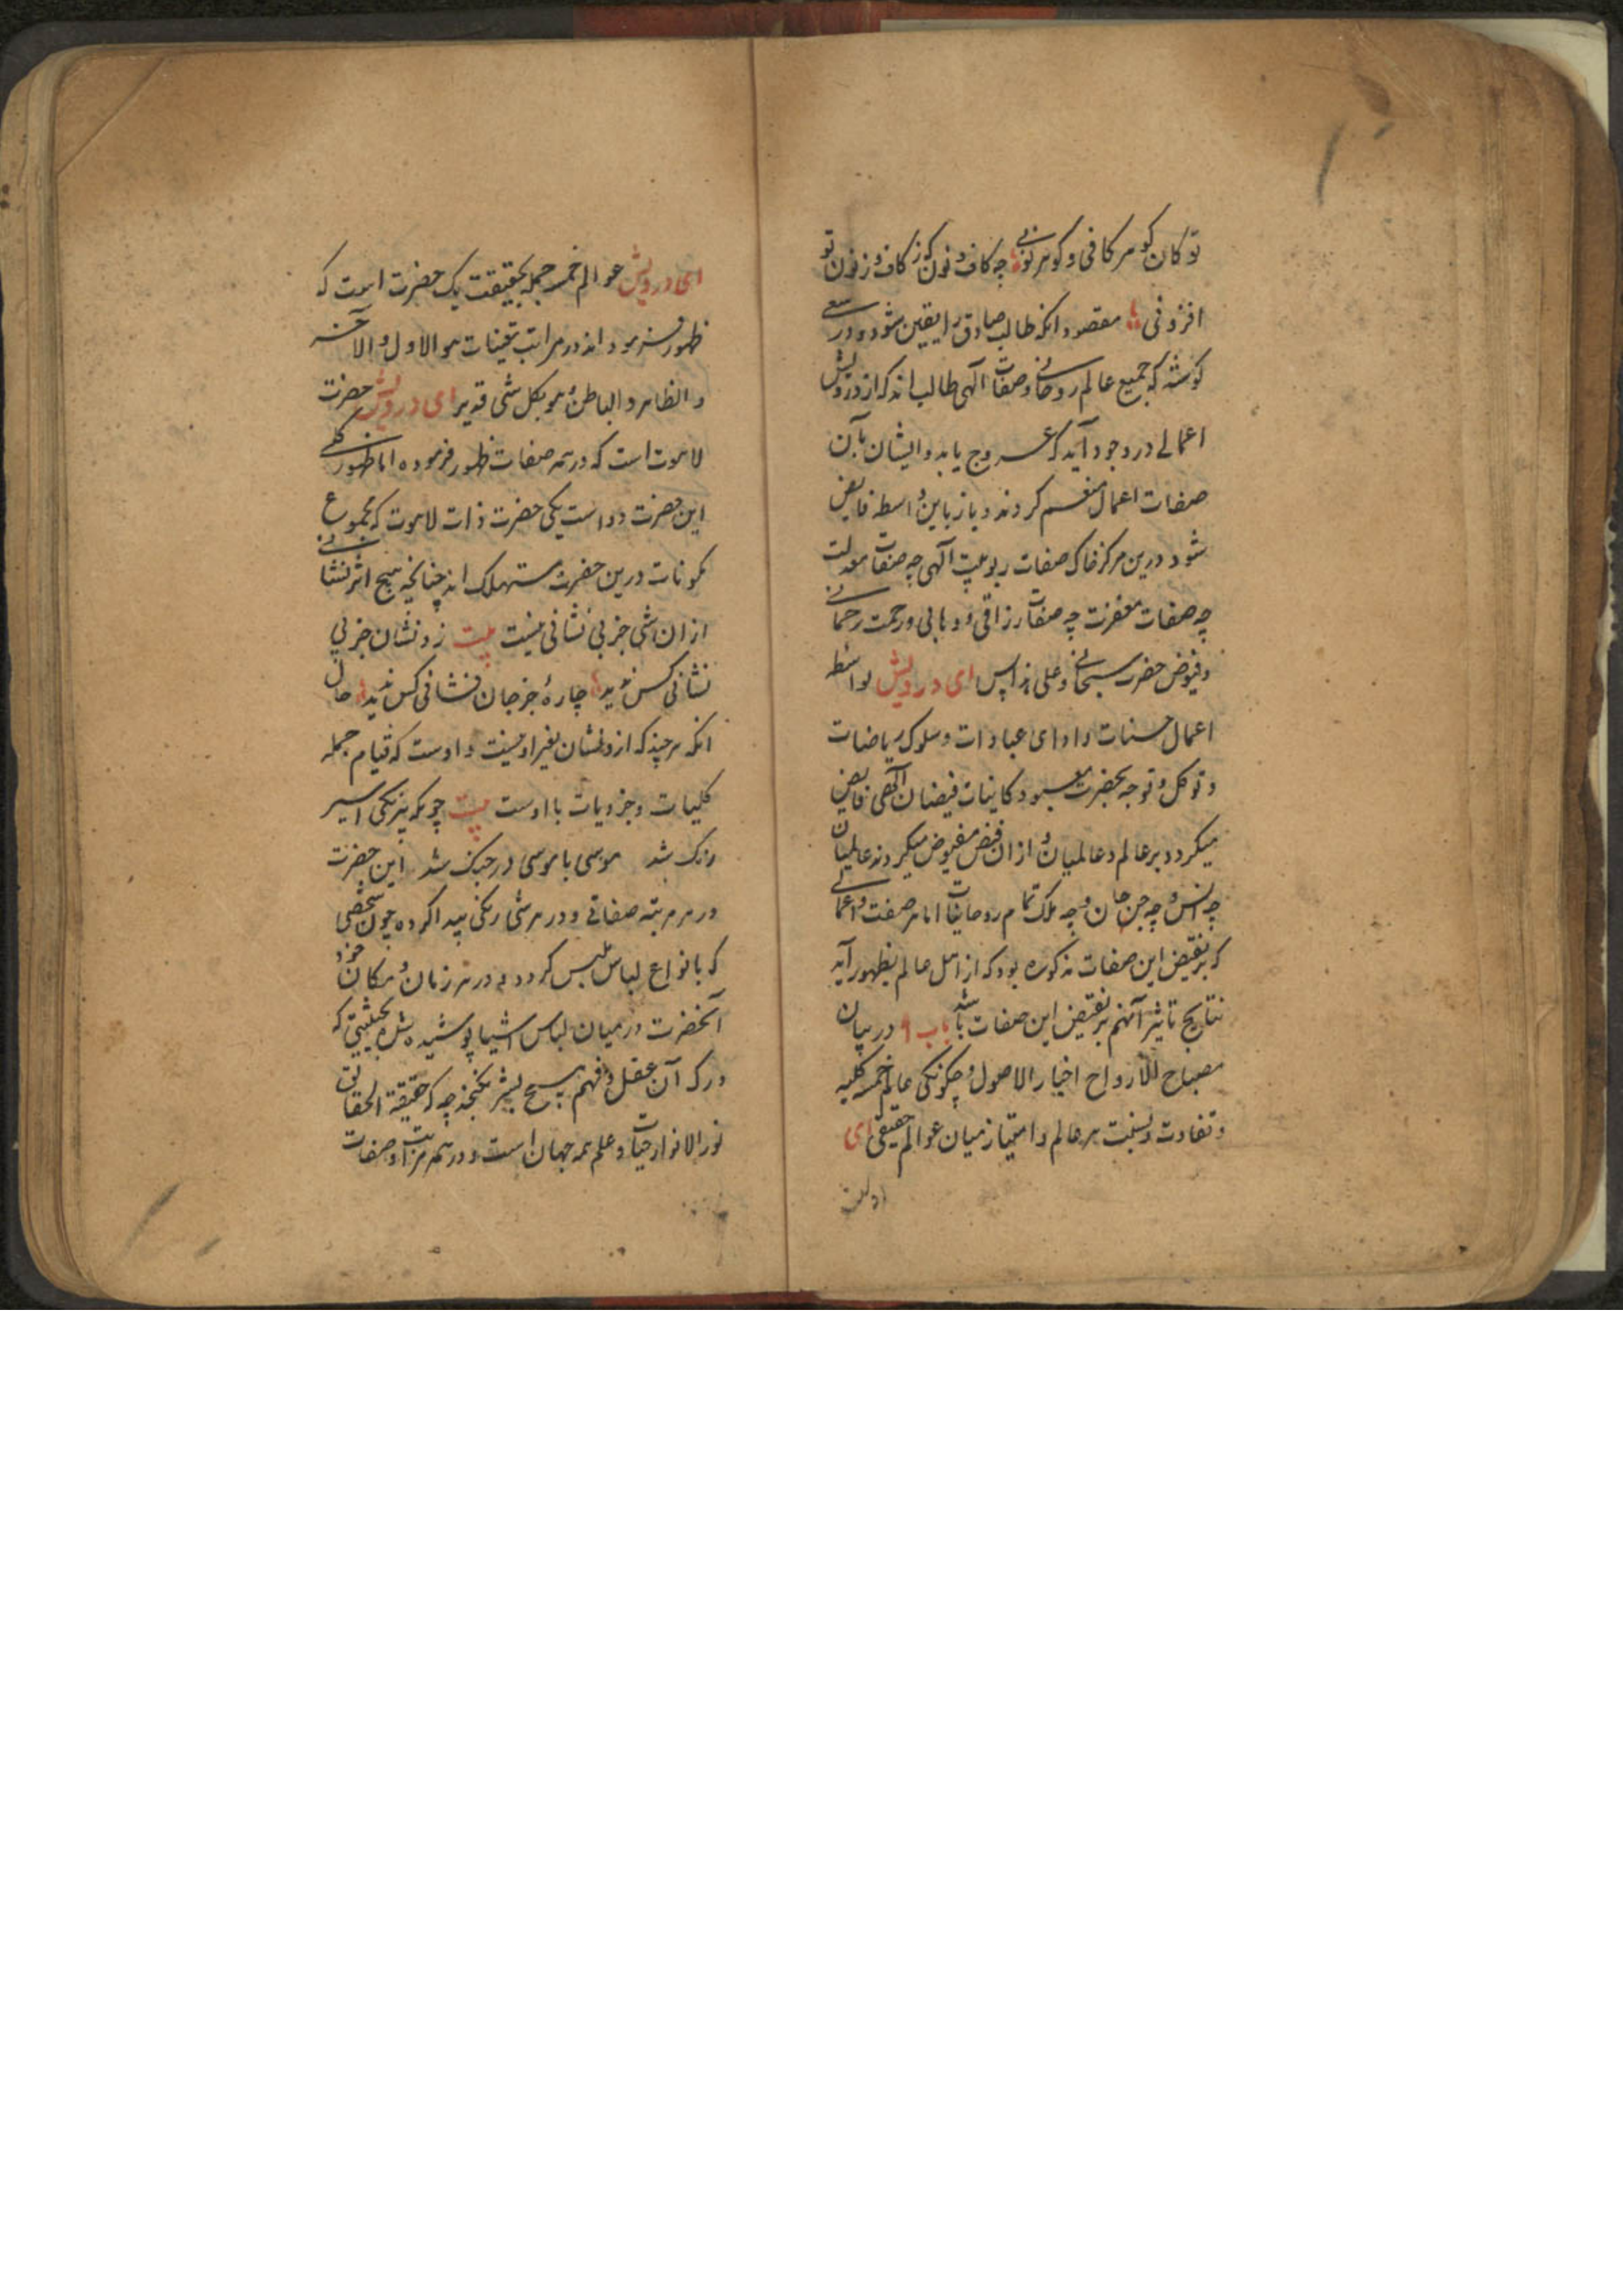 تو کان کوهر کافی و کوهر نونی چه کاف و نون که ز کاف و ز نون تو
افزونی مقصود انکه طالب صادق را یقین شود و در سعی
کوشد که جمیع عالم روحانی و صفات الهی طالب اند که از درویش
اعمالی در وجود آید که عروج یابد و ایشان بآن
صفات اعمال منقسم کردند و باز باین واسطه فایض
شود درین مرکز خاک صفات ربوبیت الهی چه صفات معدلت
چه صفات مغفرت چه صفات رزاقی و وهابی و رحمت رحمانی
و فیوض حضرت سبحانی و علی هذا پس ای درویش بواسطه
اعمال حسنات و ادای عبادات و سلوک ریاضات
و توکل و توجه بحضرت معبود کاینات فیضان الهی فایض
میکردد بر عالم و عالمیان و از ان فیض مفیوض میکردند عالمیان
چه انس و چه جن جان و چه ملک تمام روحانیات اما هر صفت و اعمالی
که بر نقیض این صفات مذکوره بود که از اهل عالم بظهور آید
نتایج تاثیر آنهم بر نقیض این صفات باشد باب ۹ در بیان
مصباح الارواح اخیار الاصول و چکونکی عالم خمسه کلیه
و تفاوت و نسبت هر عالم و امتیاز میان عوالم حقیقی ای
ای درویش عوالم خمسه جمله بحقیقت یک حضرت است که
ظهور فرموده اند در مراتب تعینات هو الاول و الآخر
و الظاهر و الباطن و هو بکل شی قدیر ای درویش حضرت
لاهوت است که در همه صفات ظهور فرموده اما ظهور کلی
این حضرت دو است یکی حضرت ذات لاهوت که مجموع
مکونات درین حضرت مستهلک اند چنانچه هیچ اثر نشانی
از ان شی جز بی نشانی نیست بیت زو نشان جز بی
نشانی کس ندید چارهٔ جز جان فشانی کس ندید حال
انکه هر چند که از و نشان بغیر او نیست و اوست که قیام جمله
کلیات و جزویات با اوست بیت چونکه بیرنکی اسیر
رنک شد موسی با موسی در جنک شد این حضرت
در هر مرتبه صفاتی و در هر شی رنکی پیدا کرده چون شخصی
که بانواع لباس ملبس کردد و در هر زمان و مکان خود
آنحضرت در میان لباس اشیا پوشیده شد بحیثیتی که
درک آن عقل و فهم هیچ بشر نکنجد چه که حقیقة الحقایق
نور الانوار حیات و علم همه جهان است و در همه مراتب و صفات